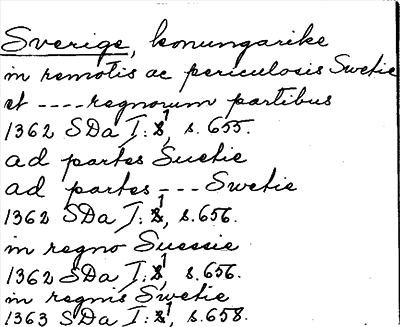 Sverige, konungarike
in remotis ac periculosis Swetie
et ----regnorum partibus
1362 SDa I:1, s.655.
ad partes Suetie
ad partes --- Swetie
1362 SDa I:1, s.656.
in regno Suessie
1362 SDa I:1, s.656.
in regnis Swetie
1363 SDa I:1, s.658.